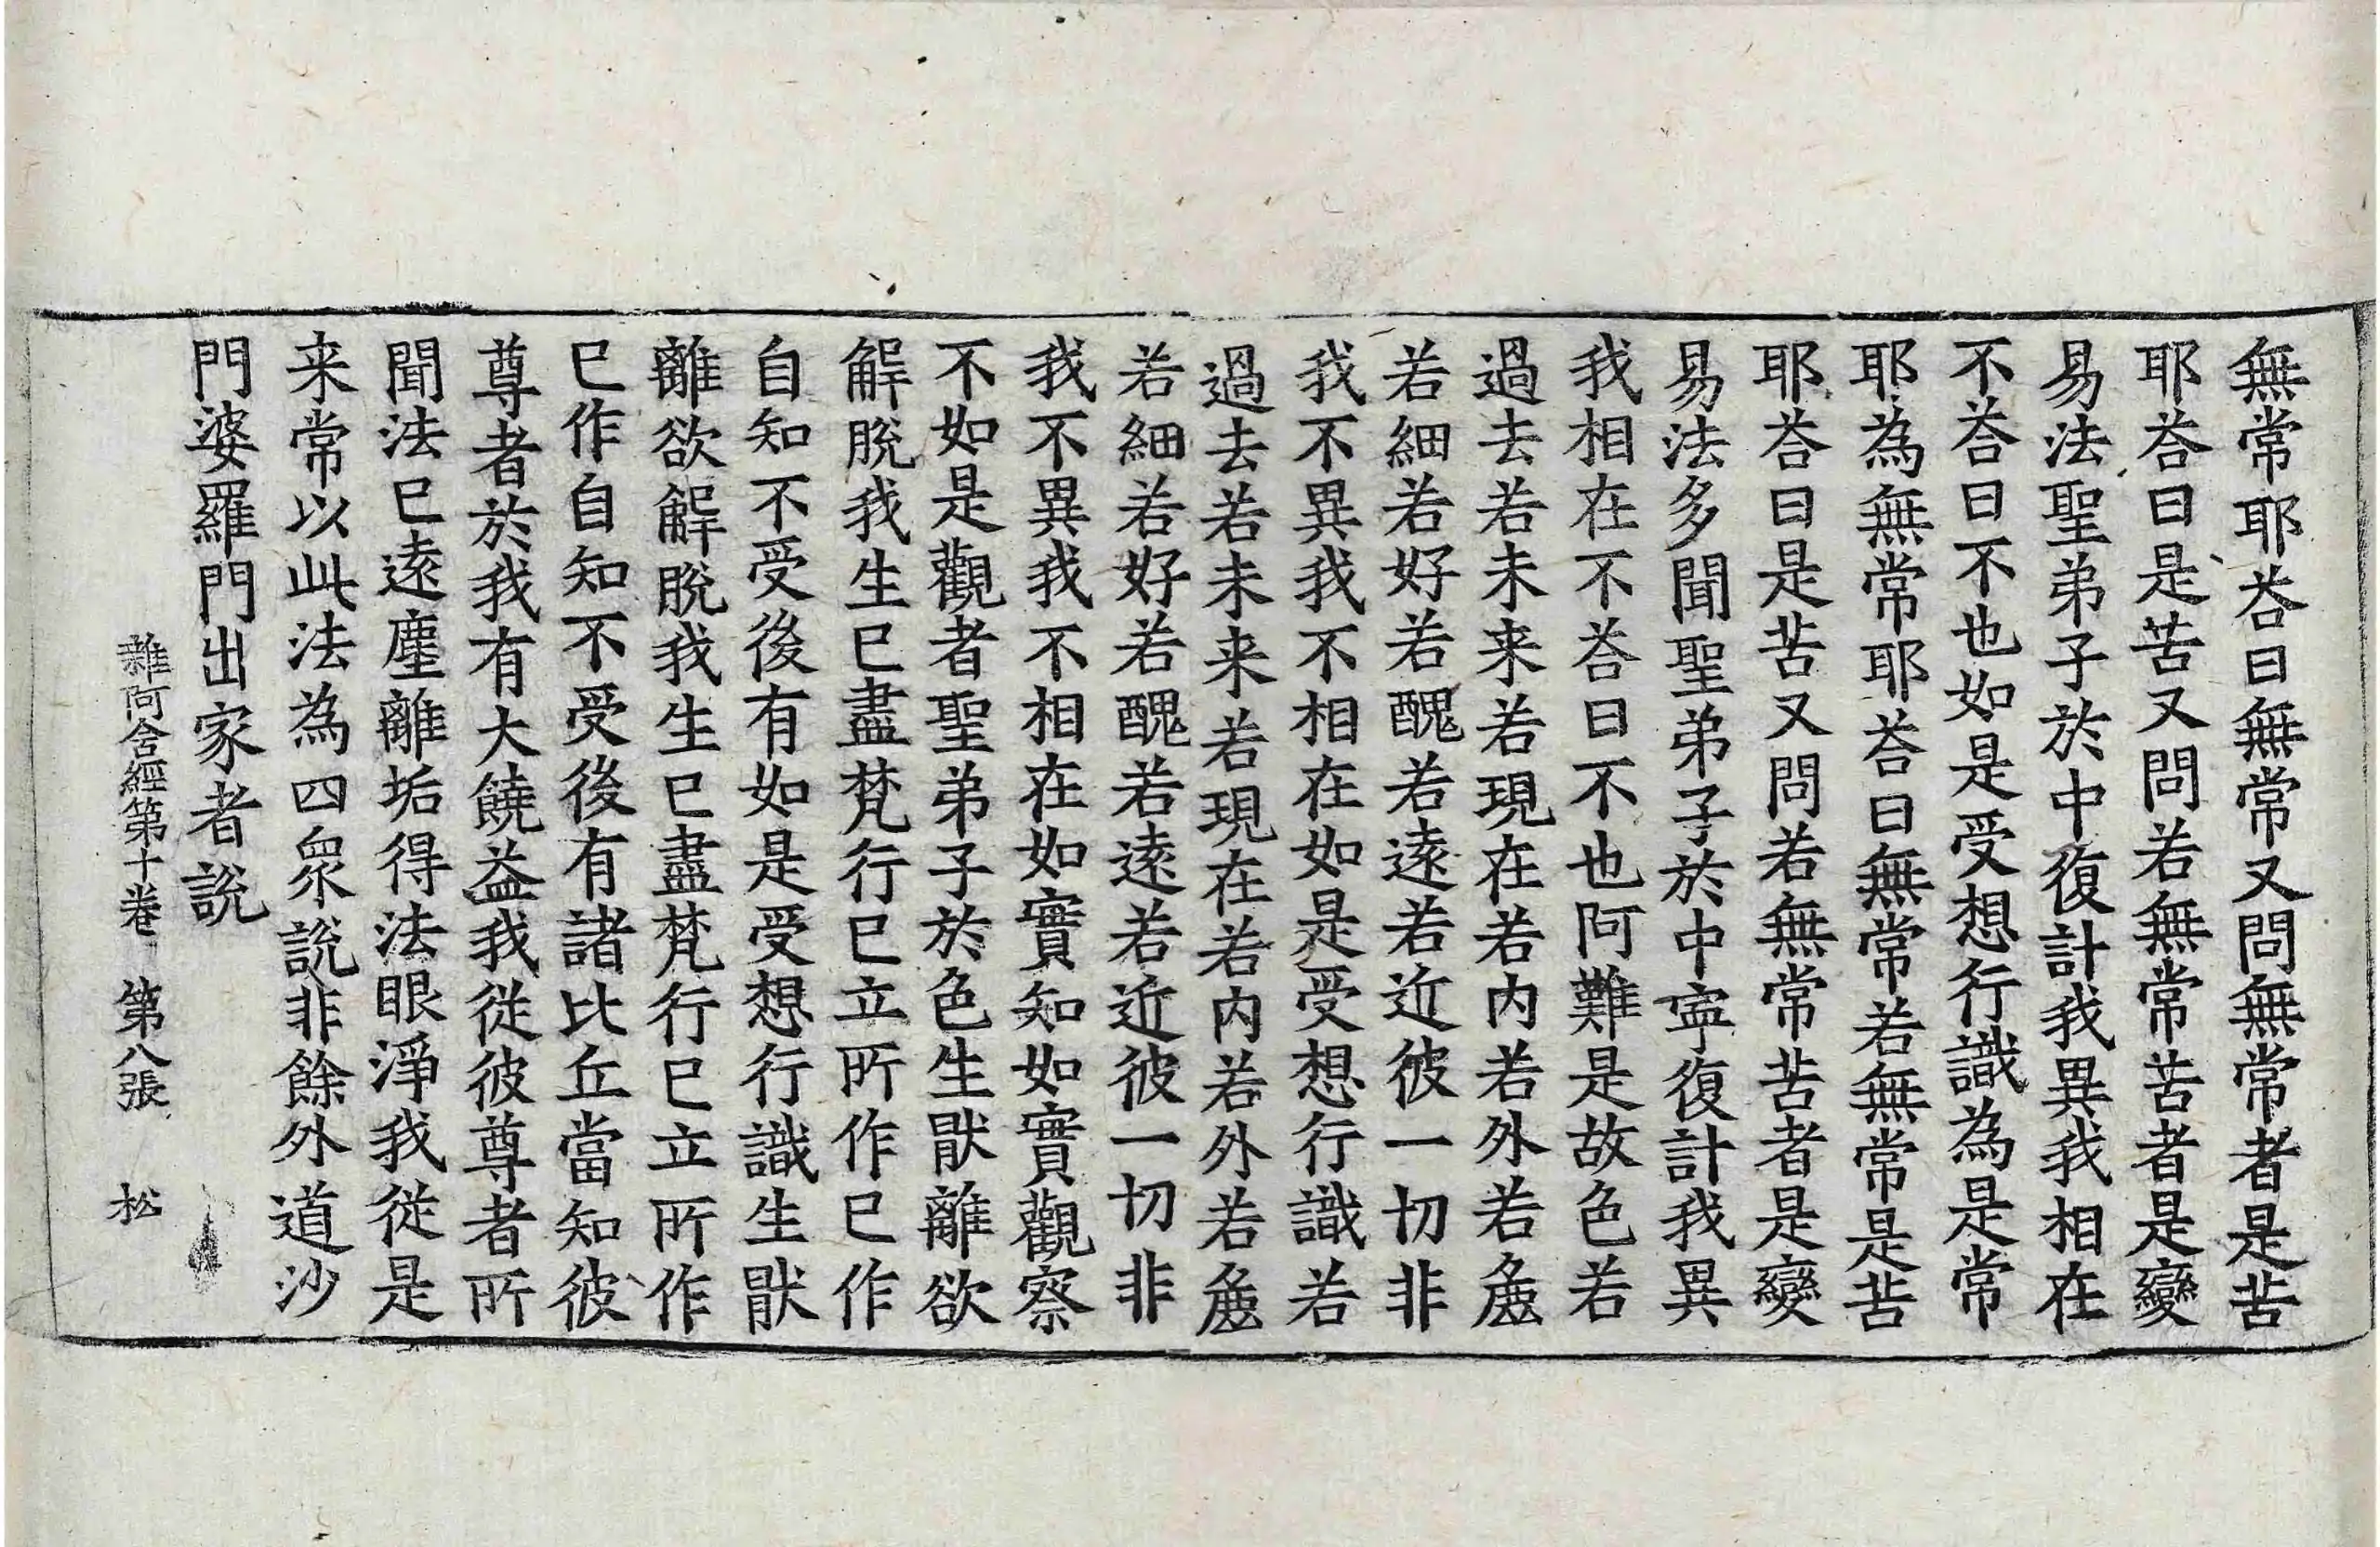 無常耶荅曰無常又問無常者是苦
耶荅曰是苦又問若無常苦者是變
易法聖弟子於中復計我異我相在
不荅曰不也如是受想行識為是常
耶為無常耶荅曰無常若無常是苦
耶荅曰是苦又問若無常苦者是變
易法多聞聖弟子於中寧復計我異
我相在不荅曰不也阿難是故色若
過去若未来若現在若内若外若麁
若細若好若醜若遠若近彼一切非
我不異我不相在如是受想行識若
過去若未来若現在若内若外若麁
若細若好若醜若遠若近彼一切非
我不異我不相在如實知如實觀察
不如是觀者聖弟子於色生猒離欲
解脫我生已盡梵行已立所作已作
自知不受後有如是受想行識生猒
離欲解脫我生已盡梵行已立所作
已作自知不受後有諸比丘當知彼
尊者於我有大饒益我從彼尊者所
聞法已遠塵離垢得法眼淨我從是
来常以此法為四衆說非餘外道沙
門婆羅門出家者說
雜阿含經第十卷 第八張 松